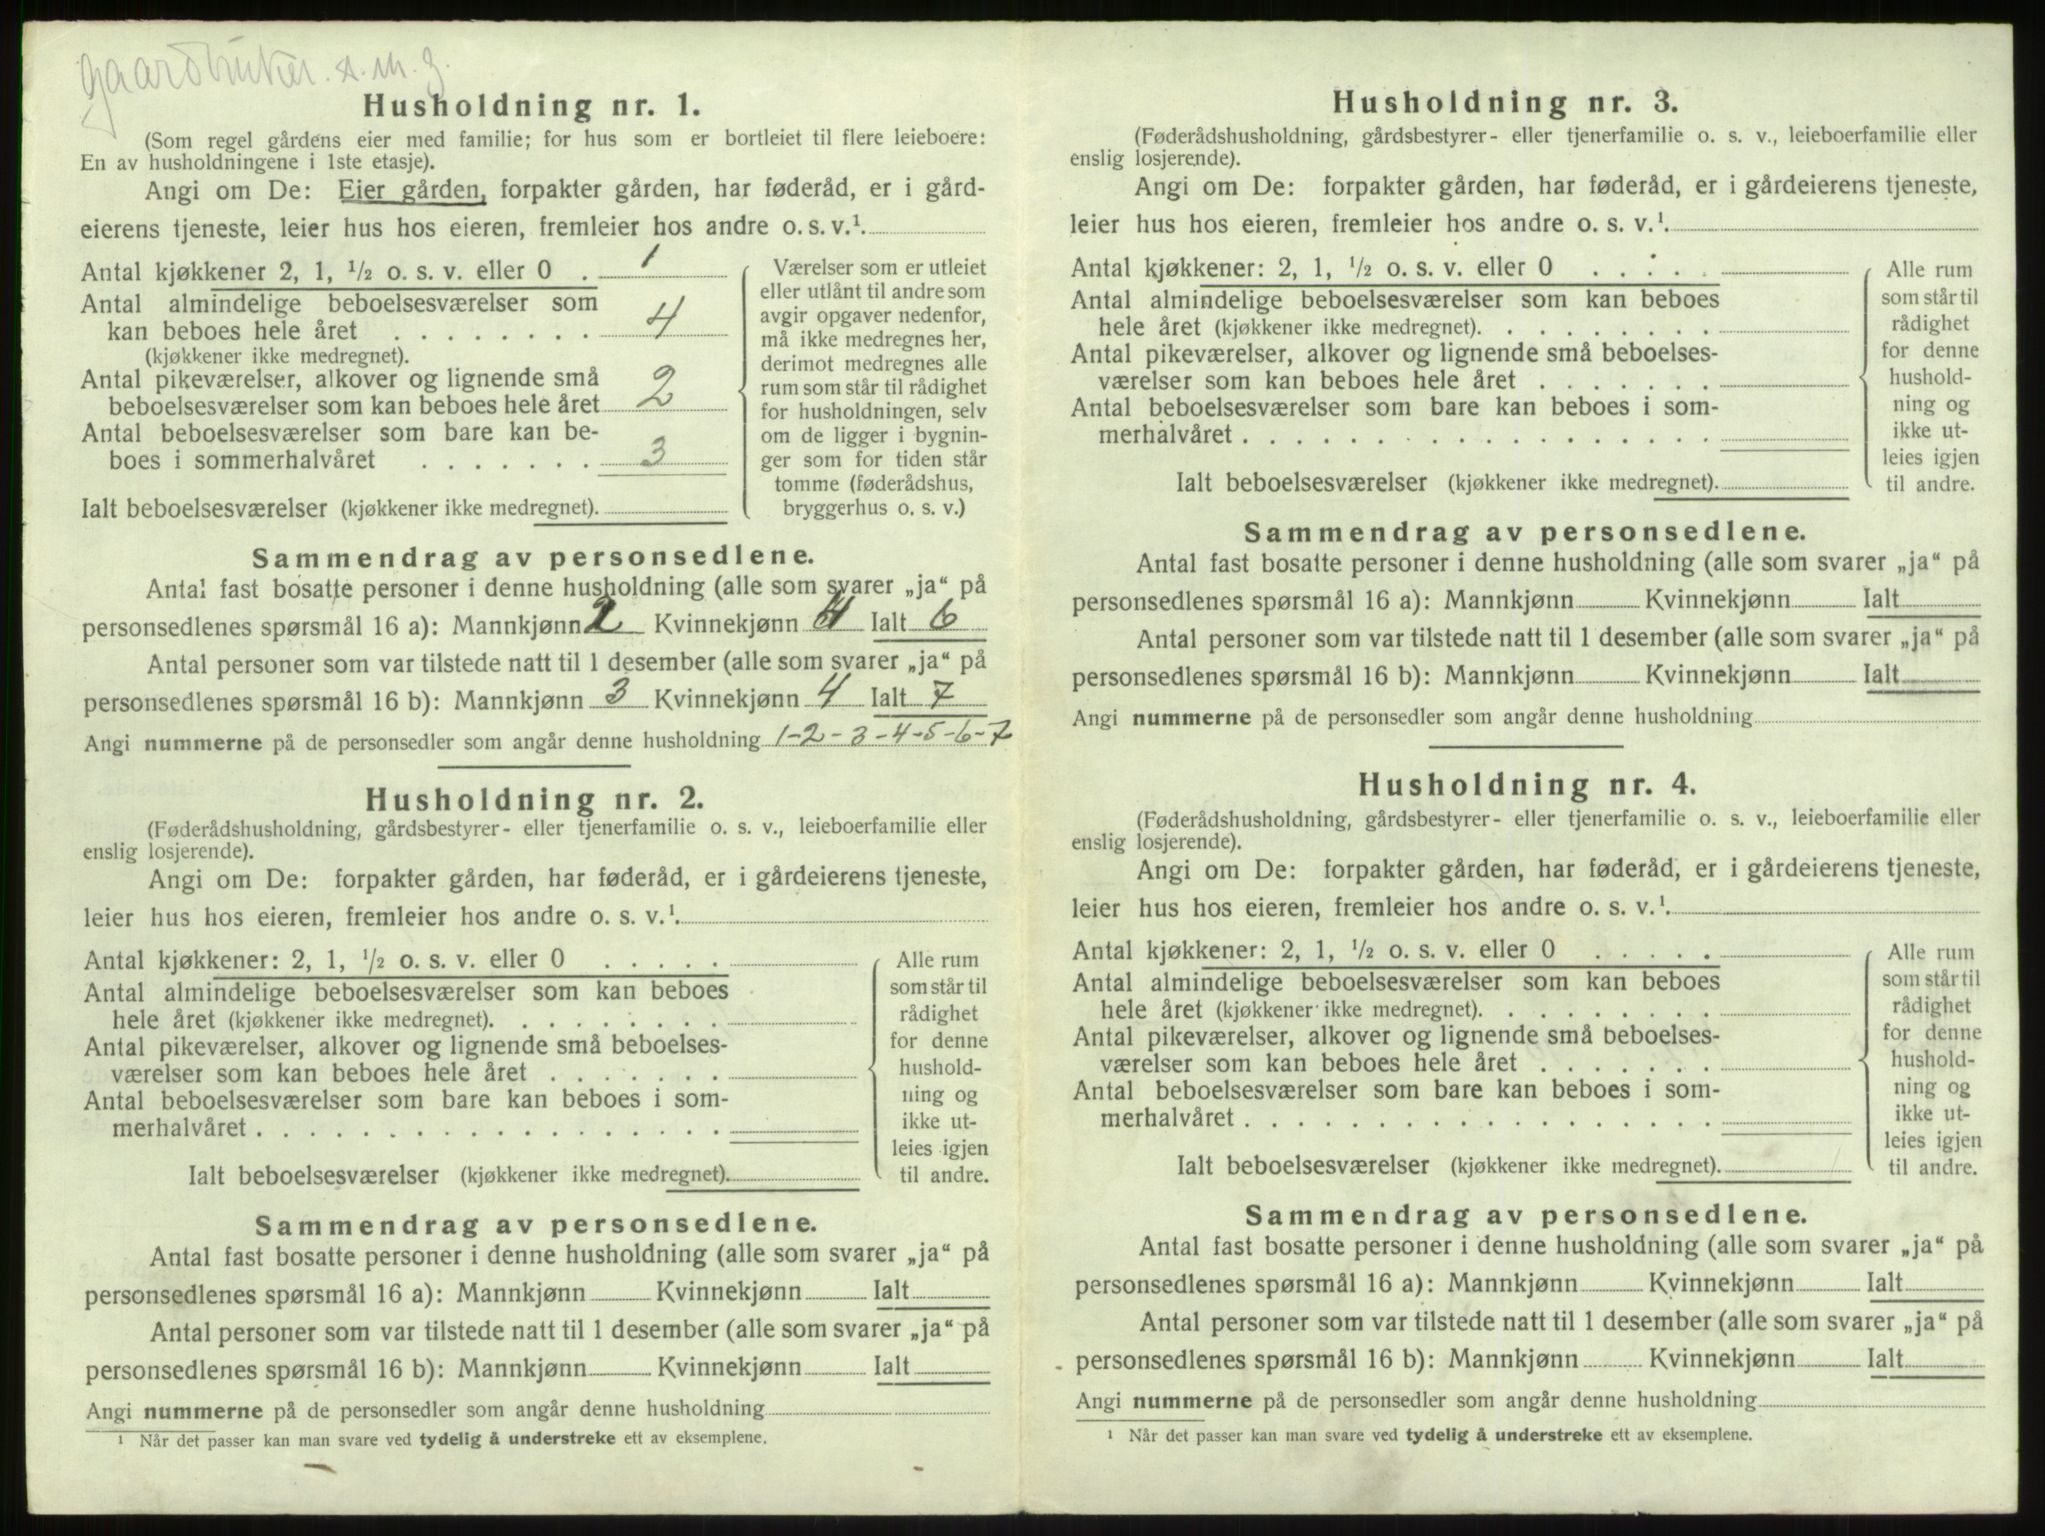 gaardbruker. s. m. g.
Husholdning nr. 1.
(Som regel gårdens eier med familie; for hus som er bortleiet til flere leieboere:
En av husholdningene i 1ste etasje).
Angi om De: Eier gården, forpakter gården, har føderåd, er i gård-
eierens tjeneste, leier hus hos eieren, fremleier hos andre o. s. v.¹.
Antal kjøkkener 2, 1, ½ o. s. v. eller 0 . 1
Antal almindelige beboelsesværelser som
kan beboes hele året . . . . . . . . 4
(kjøkkener ikke medregnet).
Antal pikeværelser, alkover og lignende små
beboelsesværelser som kan beboes hele året 2
Antal beboelsesværelser som bare kan be-
boes i sommerhalvåret . . . . . . . 3
Ialt beboelsesværelser (kjøkkener ikke medregnet).
Værelser som er utleiet
eller utlånt til andre som
avgir opgaver nedenfor,
må ikke medregnes her,
derimot medregnes alle
rum som står til rådighet
for husholdningen, selv
om de ligger i bygnin-
ger som for tiden står
tomme (føderådshus,
bryggerhus o. s. v.)
Sammendrag av personsedlene.
Antal fast bosatte personer i denne husholdning (alle som svarer „ja“ på
personsedlenes spørsmål 16 a): Mannkjønn 2 Kvinnekjønn 4 Ialt 6
Antal personer som var tilstede natt til 1 desember (alle som svarer „ja“ på
personsedlenes spørsmål 16 b): Mannkjønn 3 Kvinnekjønn 4 Ialt 7
Angi nummerne på de personsedler som angår denne husholdning 1-2-3-4-5-6-7
Husholdning nr. 2.
(Føderådshusholdning, gårdsbestyrer- eller tjenerfamilie o. s. v., leieboerfamilie eller
enslig losjerende).
Angi om De: forpakter gården, har føderåd, er i gårdeierens tjeneste,
leier hus hos eieren, fremleier hos andre o. s. v.¹.
Antal kjøkkener: 2, 1, ½ o. s. v. eller 0 . . . . .
Antal almindelige beboelsesværelser som kan beboes
hele året (kjøkkener ikke medregnet). . . . . . . .
Antal pikeværelser, alkover og lignende små beboelses-
værelser som kan beboes hele året . . . . . . .
Antal beboelsesværelser som bare kan beboes i som-
merhalvåret . . . . . . . . . . . . . . . . . .
Ialt beboelsesværelser (kjøkkener ikke medregnet).
Alle rum
som står til
rådighet
for denne
hushold-
ning og
ikke ut-
leies igjen
til andre.
Sammendrag av personsedlene.
Antal fast bosatte personer i denne husholdning (alle som svarer „ja“ på
personsedlenes spørsmål 16 a): Mannkjønn Kvinnekjønn Ialt
Antal personer som var tilstede natt til 1 desember (alle som svarer „ja“ på
personsedlenes spørsmål 16 b): Mannkjønn Kvinnekjønn Ialt
Angi nummerne på de personsedler som angår denne husholdning
¹ Når det passer kan man svare ved tydelig å understreke ett av eksemplene.
Husholdning nr. 3.
(Føderådshusholdning, gårdsbestyrer- eller tjenerfamilie o. s. v., leieboerfamilie eller
enslig losjerende).
Angi om De: forpakter gården, har føderåd, er i gårdeierens tjeneste,
leier hus hos eieren, fremleier hos andre o. s. v.¹.
Antal kjøkkener: 2, 1, ½ o. s. v. eller 0 . . . . .
Antal almindelige beboelsesværelser som kan beboes
hele året (kjøkkener ikke medregnet). . . . . . . .
Antal pikeværelser, alkover og lignende små beboelses-
værelser som kan beboes hele året . . . . . . .
Antal beboelsesværelser som bare kan beboes i som-
merhalvåret . . . . . . . . . . . . . . . . . .
Ialt beboelsesværelser (kjøkkener ikke medregnet).
Alle rum
som står til
rådighet
for denne
hushold-
ning og
ikke ut-
leies igjen
til andre.
Sammendrag av personsedlene.
Antal fast bosatte personer i denne husholdning (alle som svarer „ja“ på
personsedlenes spørsmål 16 a): Mannkjønn Kvinnekjønn Ialt
Antal personer som var tilstede natt til 1 desember (alle som svarer „ja“ på
personsedlenes spørsmål 16 b): Mannkjønn Kvinnekjønn Ialt
Angi nummerne på de personsedler som angår denne husholdning
Husholdning nr. 4.
(Føderådshusholdning, gårdsbestyrer- eller tjenerfamilie o. s. v., leieboerfamilie eller
enslig losjerende).
Angi om De: forpakter gården, har føderåd, er i gårdeierens tjeneste,
leier hus hos eieren, fremleier hos andre o. s. v.¹.
Antal kjøkkener: 2, 1, ½ o. s. v. eller 0 . . . . .
Antal almindelige beboelsesværelser som kan beboes
hele året (kjøkkener ikke medregnet). . . . . . . .
Antal pikeværelser, alkover og lignende små beboelses-
værelser som kan beboes hele året . . . . . . .
Antal beboelsesværelser som bare kan beboes i som-
merhalvåret . . . . . . . . . . . . . . . . . .
Ialt beboelsesværelser (kjøkkener ikke medregnet).
Alle rum
som står til
rådighet
for denne
hushold-
ning og
ikke ut-
leies igjen
til andre.
Sammendrag av personsedlene.
Antal fast bosatte personer i denne husholdning (alle som svarer „ja“ på
personsedlenes spørsmål 16 a): Mannkjønn Kvinnekjønn Ialt
Antal personer som var tilstede natt til 1 desember (alle som svarer „ja“ på
personsedlenes spørsmål 16 b): Mannkjønn Kvinnekjønn Ialt
Angi nummerne på de personsedler som angår denne husholdning
¹ Når det passer kan man svare ved tydelig å understreke ett av eksemplene.